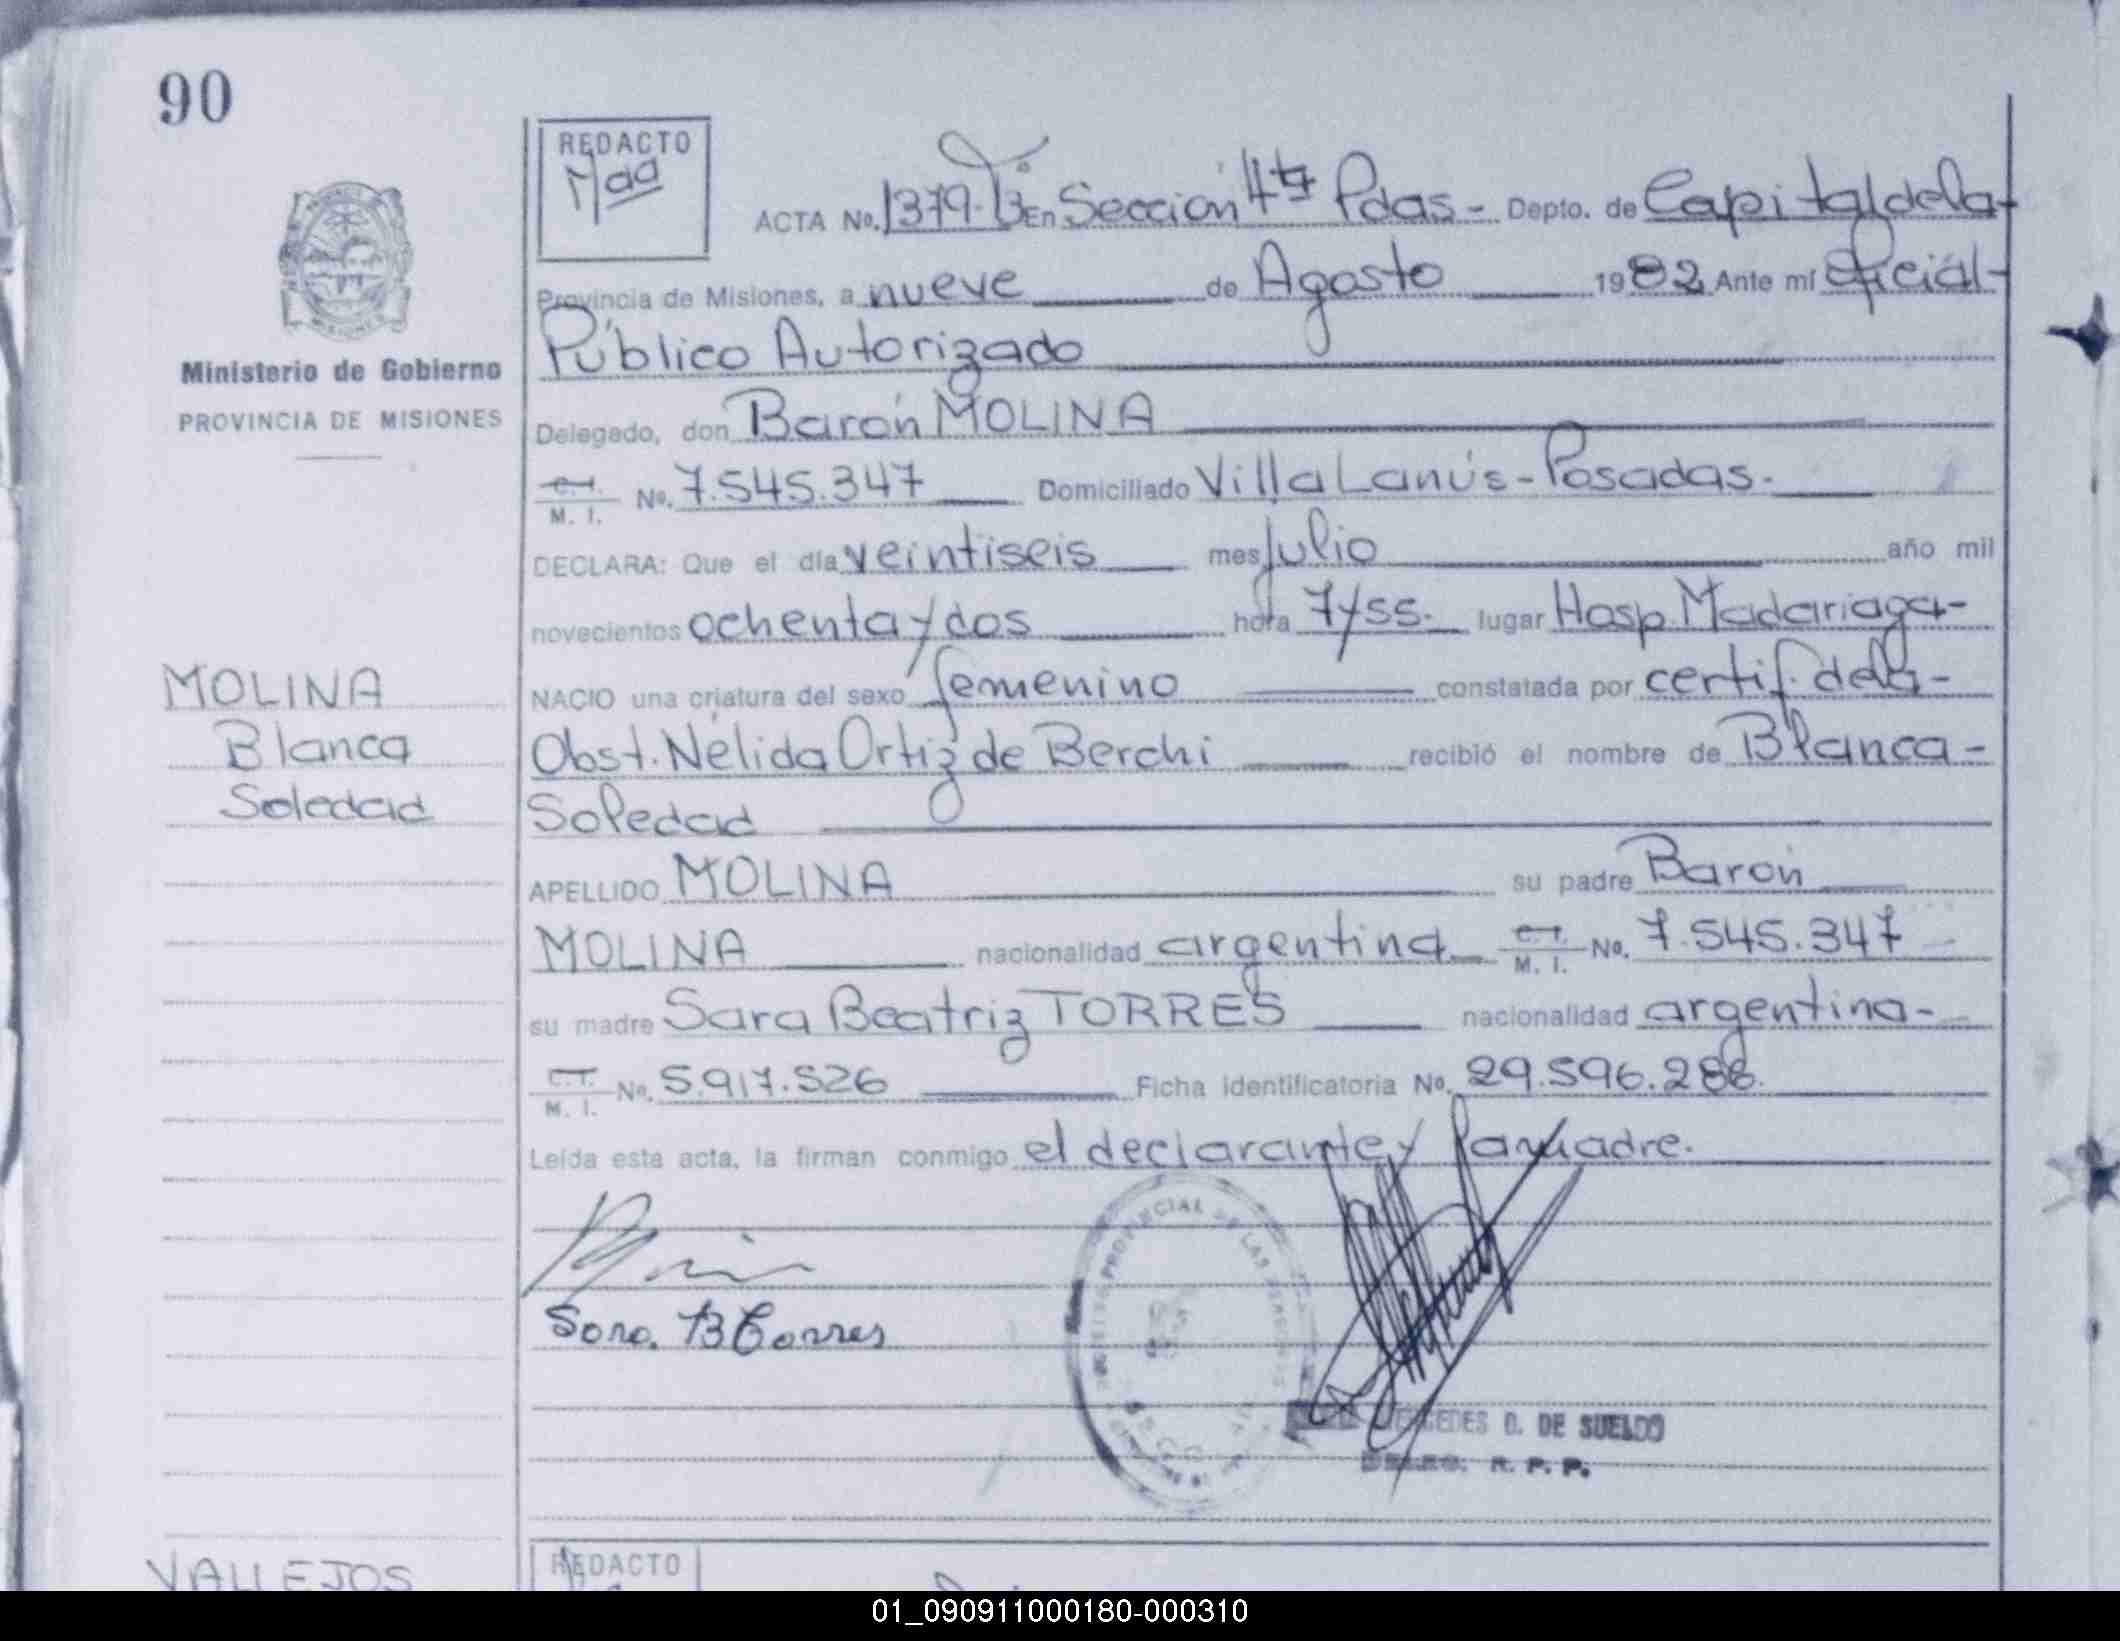 90
REDACTO
ACTA No. 1379- En Sección 4ta Pdas- Depto. de Capital de la
Provincia de Misiones, a nueve de Agosto 1982 Ante mí Oficial-
Público Autorizado
Ministerio de Gobierno
PROVINCIA DE MISIONES
Delegado, don Barón MOLINA
C.I. M. I. No. 7.545.347 Domiciliado Villa Lanús-Posadas.-
DECLARA: Que el día veintiseis mes Julio año mil
novecientos ochenta y dos hora 7y55. lugar Hosp. Madariaga-
MOLINA
Blanca
Soledad
NACIO una criatura del sexo femenino constatada por certif. de la-
Obst. Nélida Ortiz de Berchi recibió el nombre de Blanca-
Soledad
APELLIDO MOLINA su padre Barón
MOLINA nacionalidad argentina C.I. M. I. No. 7.545.347
su madre Sara Beatriz TORRES nacionalidad argentina-
C.I. M. I. No. 5.917.526 Ficha identificatoria No. 29.596.288.
Leída esta acta, la firman conmigo el declarante y la madre.
Sara. B Torres
PROVINCIAL DE LAS PERSONAS
MERCEDES D. DE SUELDO
DELEG. R. P. P.
VALLEJOS
REDACTO
01_090911000180-000310